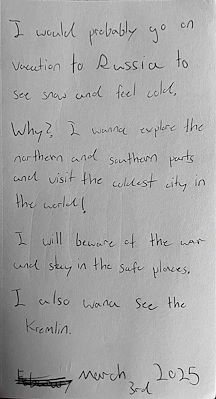 I would probably go on
vacation to Russia to
see snow and feel cold.
Why?, I wanna explore the
northern and southern parts
and visit the coldest city in
the world!
I will beware of the war
and stay in the safe places.
I also wana see the
Kremlin.
February March 2025
3rd